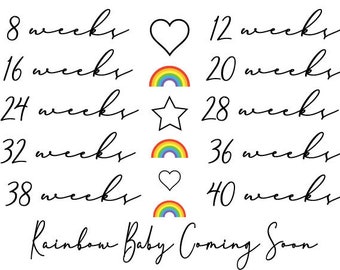 8 weeks 12 weeks
16 weeks 20 weeks
24 weeks 28 weeks
32 weeks 36 weeks
38 weeks 40 weeks
Rainbow Baby Coming Soon